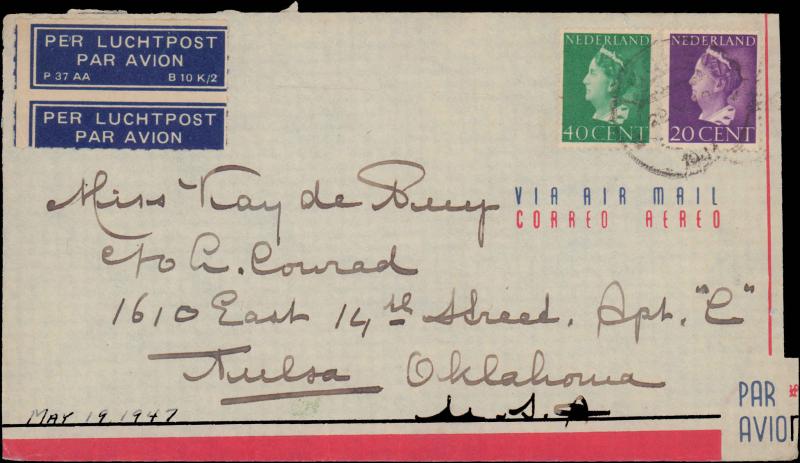 PER LUCHTPOST
PAR AVION
P 37 AA B 10 K/2
PER LUCHTPOST
PAR AVION
NEDERLAND
40 CENT
NEDERLAND
20 CENT
VIA AIR MAIL
CORREO AEREO
Miss Kay de
c/o A. Conrad
1610 East 14th Street, Apt. "C"
Tulsa Oklahoma
U.S.A
MAY 19, 1947
PAR
AVION